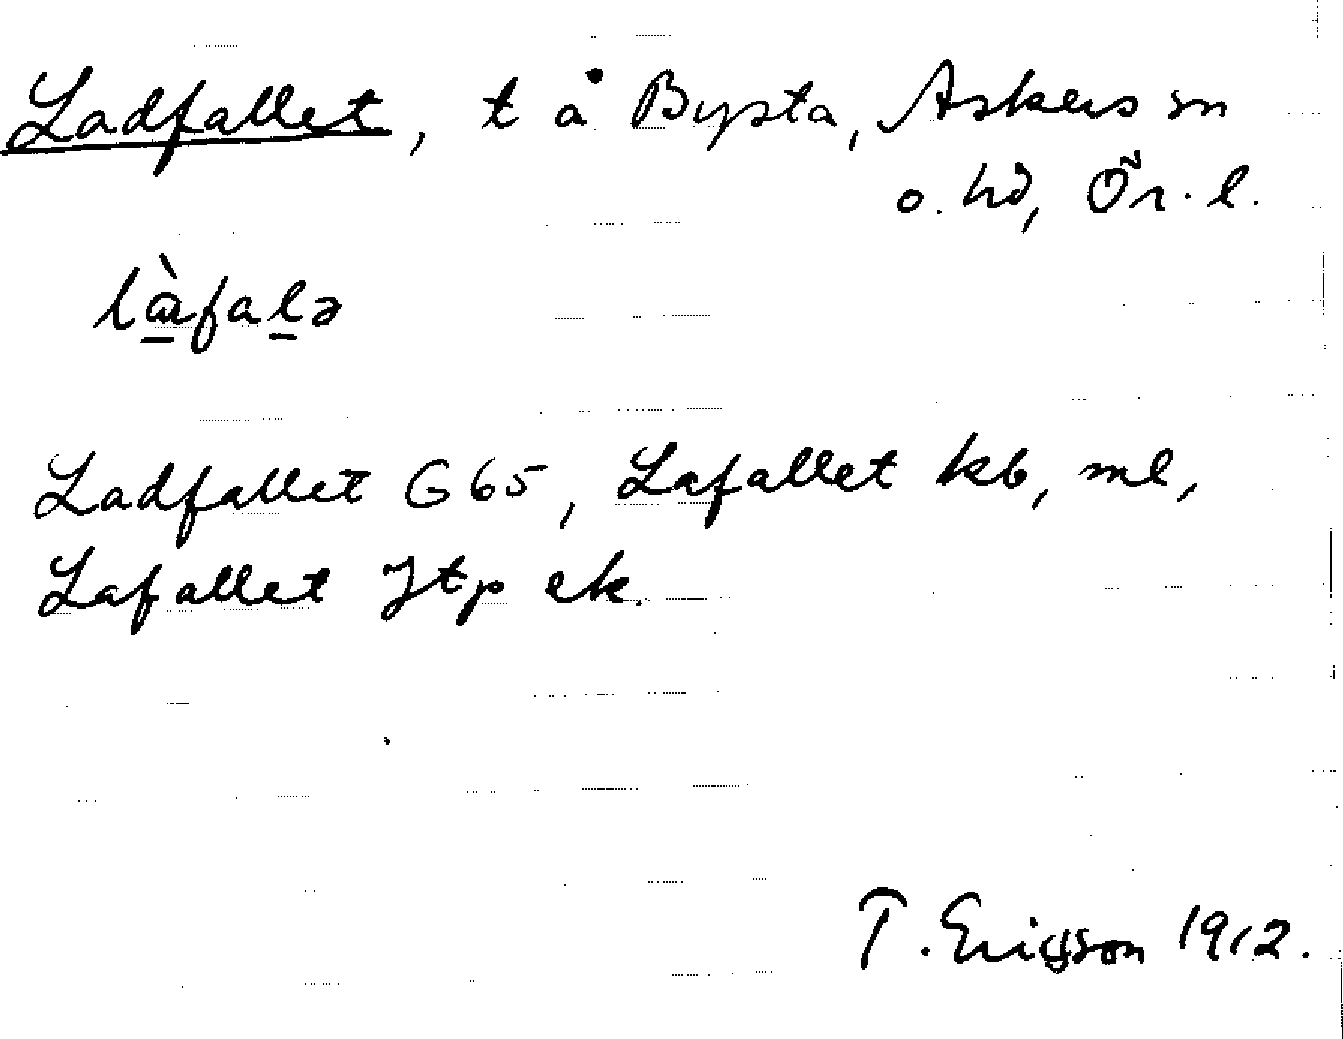 Ladfallet, t å Bysta, Askers sn
o. hd, Ör. l.
làfalə
Ladfallet G65, Lafallet kb, ml,
Lafallet Jtp ek.
T. Ericsson 1912.